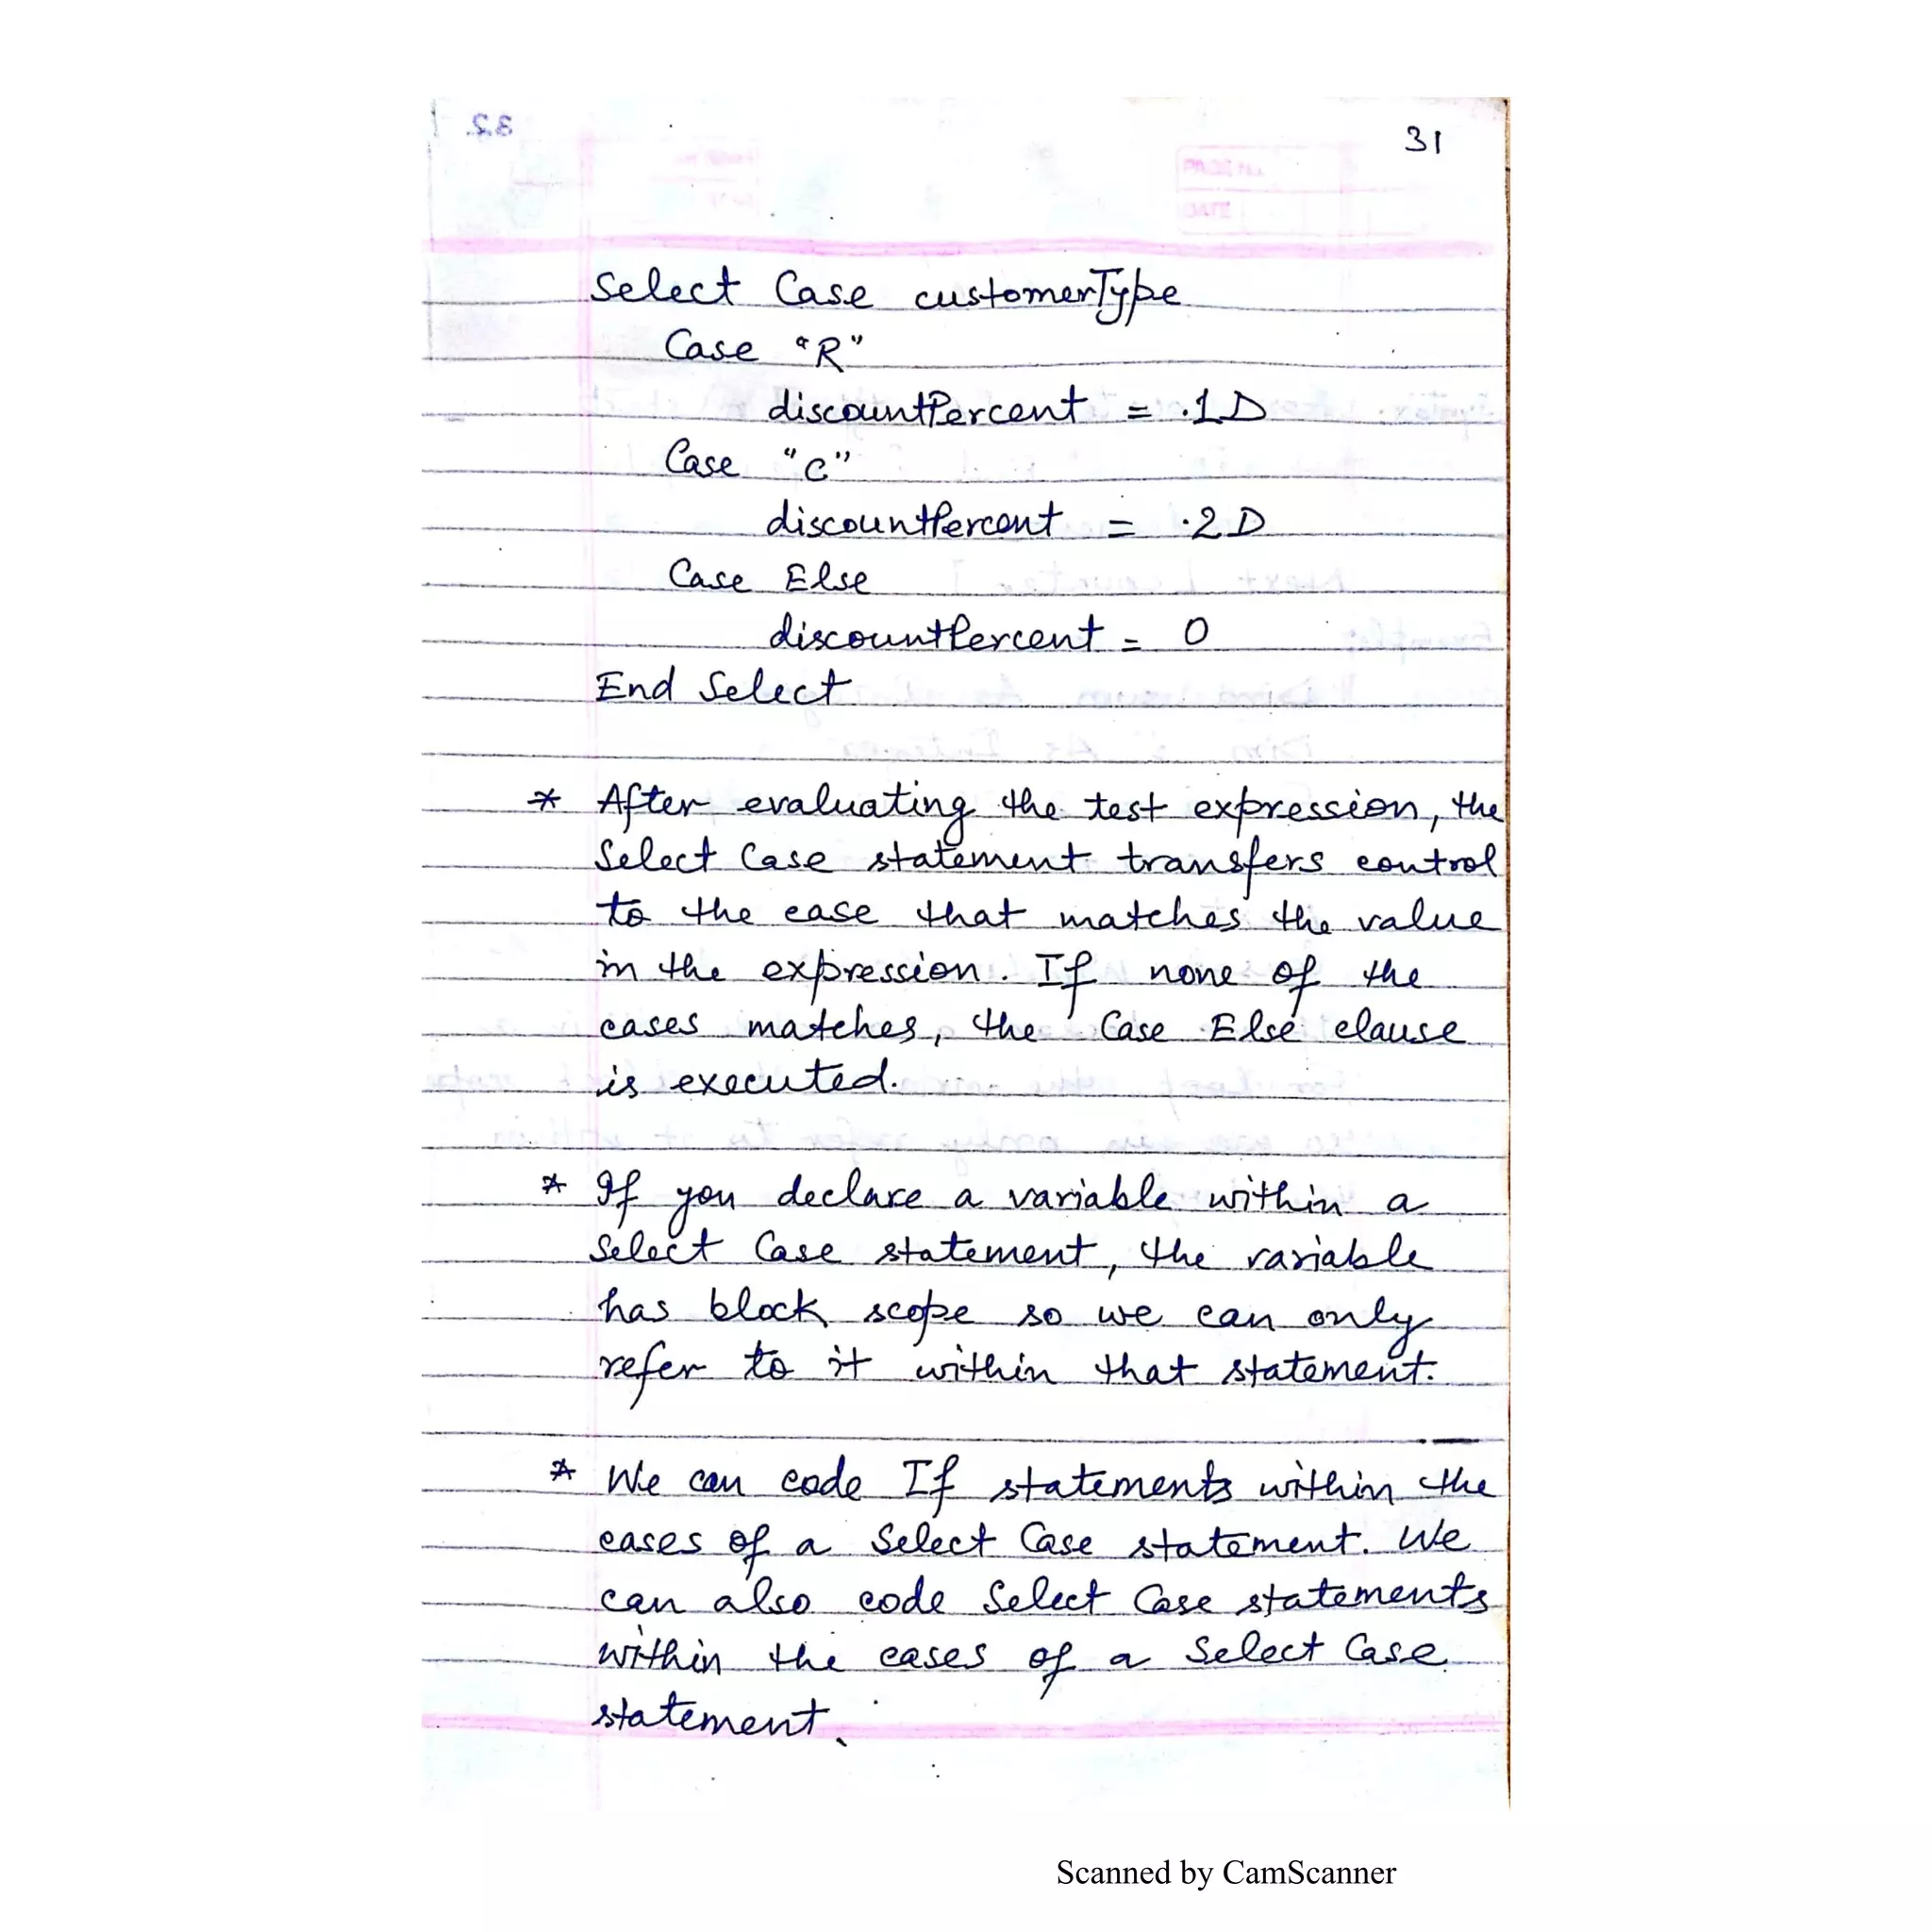 31
Select Case customerType
Case "R"
discountPercent = .1D
Case "C"
discountPercent = .2D
Case Else
discountPercent = 0
End Select
* After evaluating the test expression, the
Select Case statement transfers control
to the case that matches the value
in the expression. If none of the
cases matches, the Case Else clause
is executed.
* If you declare a variable within a
Select Case statement, the variable
has block scope so we can only
refer to it within that statement.
* We can code If statements within the
cases of a Select Case statement. We
can also code Select Case statements
within the cases of a Select Case
statement.
Scanned by CamScanner